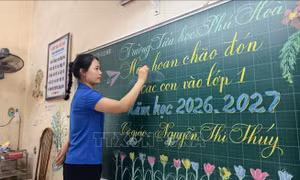 Trường Tiểu học Phú Hòa
Hân hoan chào đón
các con vào lớp 1
Năm học 2026-2027
Cô giáo: Nguyễn Thị Thúy